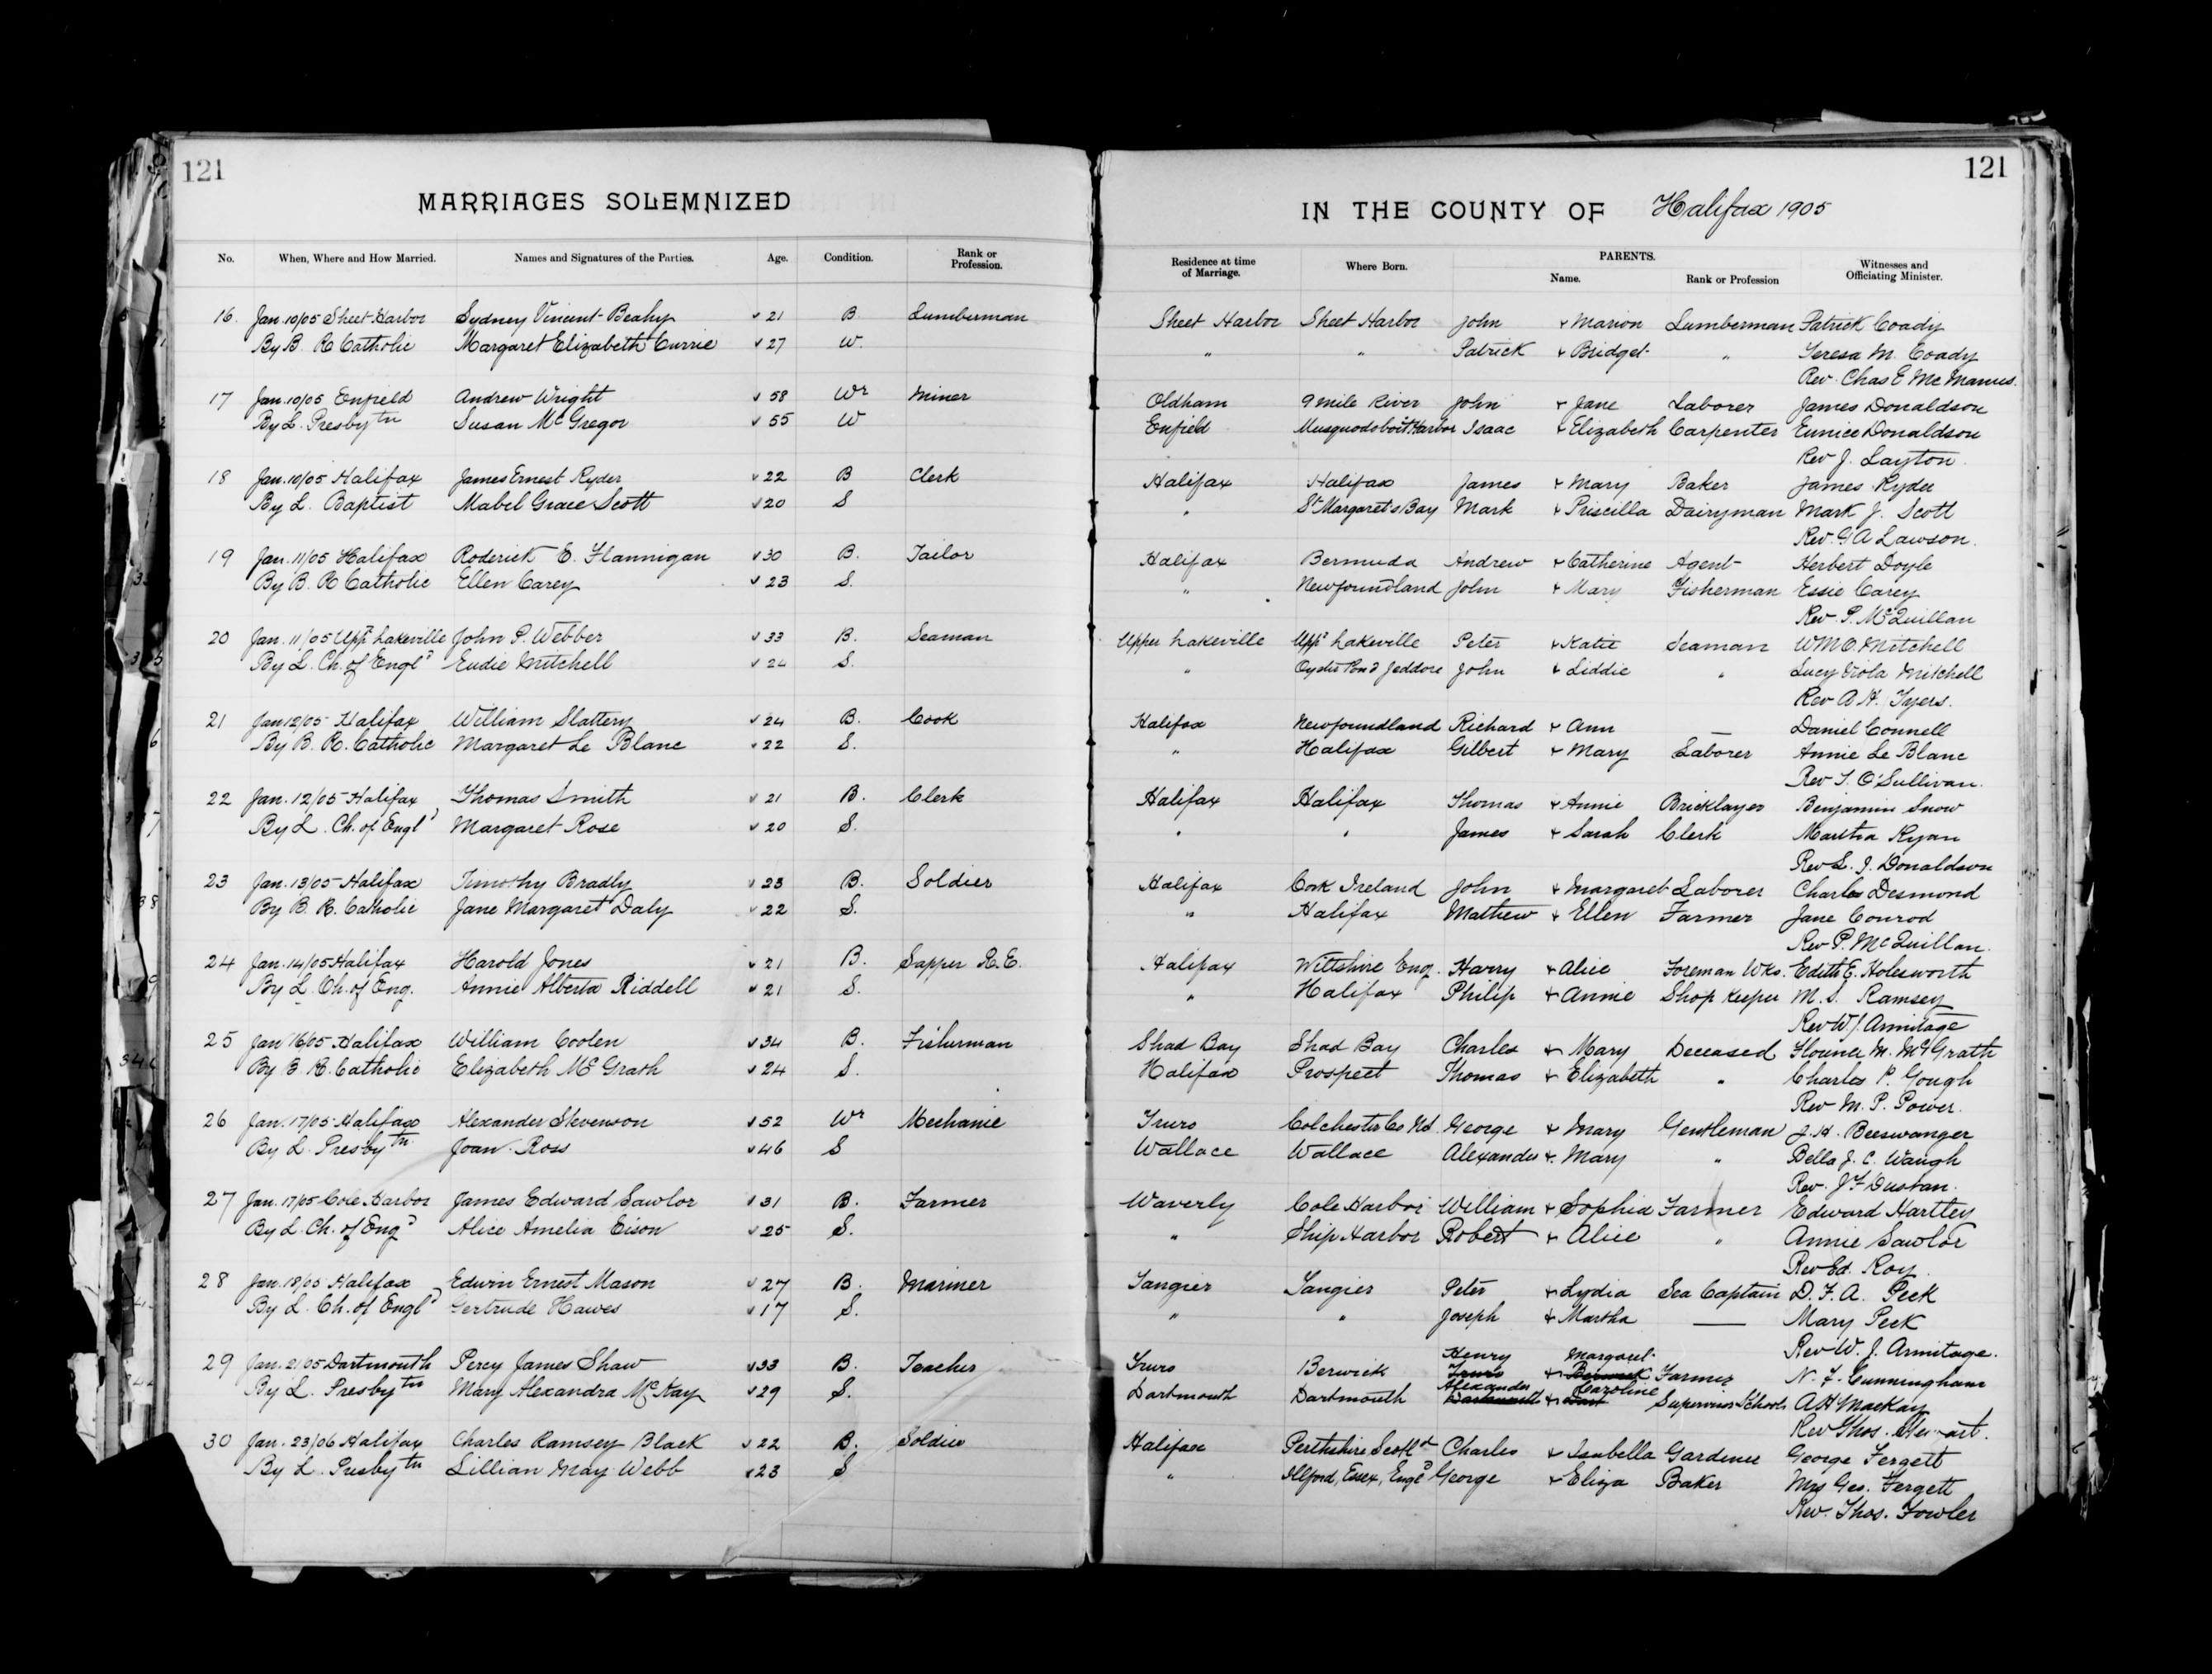 121
MARRIAGES SOLEMNIZED
No. When, Where and How Married. Names and Signatures of the Parties. Age. Condition. Rank or Profession.
16. Jan. 10/05 Sheet Harbor Sydney Vincent Beahy 21 B Lumberman
By B. R Catholic Margaret Elizabeth Currie 27 W.
17 Jan. 10/05 Enfield Andrew Wright 58 Wr Miner
By L. Presbytn Susan McGregor 55 W
18 Jan. 10/05 Halifax James Ernest Ryder 22 B Clerk
By L. Baptist Mabel Grace Scott 20 S
19 Jan. 11/05 Halifax Roderick E. Flannigan 30 B. Tailor
By B. R Catholic Ellen Carey 23 S.
20 Jan. 11/05 Uppr Lakeville John P. Webber 33 B. Seaman
By L. Ch. of Engld Eudie Mitchell 24 S.
21 Jan 12/05 Halifax William Slattery 24 B. Cook
By B. R. Catholic Margaret Le Blanc 22 S.
22 Jan. 12/05 Halifax Thomas Smith 21 B. Clerk
By L. Ch. of Engld Margaret Rose 20 S.
23 Jan. 13/05 Halifax Timothy Bradly 23 B. Soldier
By B. R. Catholic Jane Margaret Daly 22 S.
24 Jan. 14/05 Halifax Harold Jones 21 B. Sapper R.E.
By L. Ch. of Eng. Annie Alberta Riddell 21 S.
25 Jan 16/05 Halifax William Coolen 34 B. Fisherman
By B. R. Catholic Elizabeth McGrath 24 S.
26 Jan. 17/05 Halifax Alexander Stevenson 52 Wr Mechanic
By L. Presbytn Joan Ross 46 S
27 Jan. 17/05 Cole Harbor James Edward Sawlor 31 B. Farmer
By L. Ch. of Engd Alice Amelia Eison 25 S.
28 Jan. 18/05 Halifax Edwin Ernest Mason 27 B. Mariner
By L. Ch. of Engld Gertrude Hawes 17 S.
29 Jan. 21/05 Dartmouth Percy James Shaw 33 B. Teacher
By L. Presbytn Mary Alexandra McKay 29 S.
30 Jan. 23/06 Halifax Charles Ramsey Black 22 B. Soldier
By L. Presbytn Lillian May Webb 23 S
121
IN THE COUNTY OF Halifax 1905
Residence at time of Marriage. Where Born. PARENTS. Name. Rank or Profession Witnesses and Officiating Minister.
Sheet Harbor Sheet Harbor John & Marion Lumberman Patrick Coady
" " Patrick & Bridget " Teresa M. Coady
Rev. Chas E McManus.
Oldham 9 mile River John & Jane Laborer James Donaldson
Enfield Musquodoboit Harbor Isaac & Elizabeth Carpenter Eunice Donaldson
Rev J. Layton.
Halifax Halifax James & Mary Baker James Ryder
" St Margaret's Bay Mark & Priscilla Dairyman Mark J. Scott
Rev. G A Lawson.
Halifax Bermuda Andrew & Catherine Agent Herbert Doyle
" Newfoundland John & Mary Fisherman Essie Carey
Rev. P. McQuillan
Upper Lakeville Uppr Lakeville Peter & Katie Seaman WM O. Mitchell
" Oyster Pond Jeddore John & Liddie " Lucy Viola Mitchell
Rev A H. Tyers.
Halifax Newfoundland Richard & Ann — Daniel Connell
" Halifax Gilbert & Mary Laborer Annie Le Blanc
Rev T. O'Sullivan.
Halifax Halifax Thomas & Annie Bricklayer Benjamin Snow
" " James & Sarah Clerk Martha Ryan
Rev L. J. Donaldson
Halifax Cork Ireland John & Margaret Laborer Charles Desmond
" Halifax Mathew & Ellen Farmer Jane Conrod
Rev P. McQuillan.
Halifax Wiltshire Eng. Harry & Alice Foreman Wks. Edith E. Holesworth
" Halifax Philip & Annie Shop Keeper M. S. Ramsey
Rev W J. Armitage
Shad Bay Shad Bay Charles & Mary Deceased M. McGrath
Halifax Prospect Thomas & Elizabeth " Charles P. Gough
Rev M. P. Power.
Truro Colchester Co George & Mary Gentleman J. H. Beeswanger
Wallace Wallace Alexander & Mary " Bella J. C. Waugh
Rev. J F Dustan.
Waverly Cole Harbor William & Sophia Farmer Edward Hartley
" Ship Harbor Robert & Alice " Annie Sawlor
Rev Ed. Roy.
Tangier Tangier Peter & Lydia Sea Captain D. F. A. Peck
" " Joseph & Martha — Mary Peck
Rev W. J. Armitage.
Henry Margaret
Truro Berwick Truro & Berwick Farmer N. F. Cunningham
Alexander Caroline
Dartmouth Dartmouth Dartmouth & Dart Supervisor Schools A H MacKay
Rev Thos. Stewart.
Halifax Perthshire Scotld Charles & Isabella Gardener George Fergett
" Ilford, Essex, Engld George & Eliza Baker Mrs Geo. Fergett
Rev. Thos. Fowler